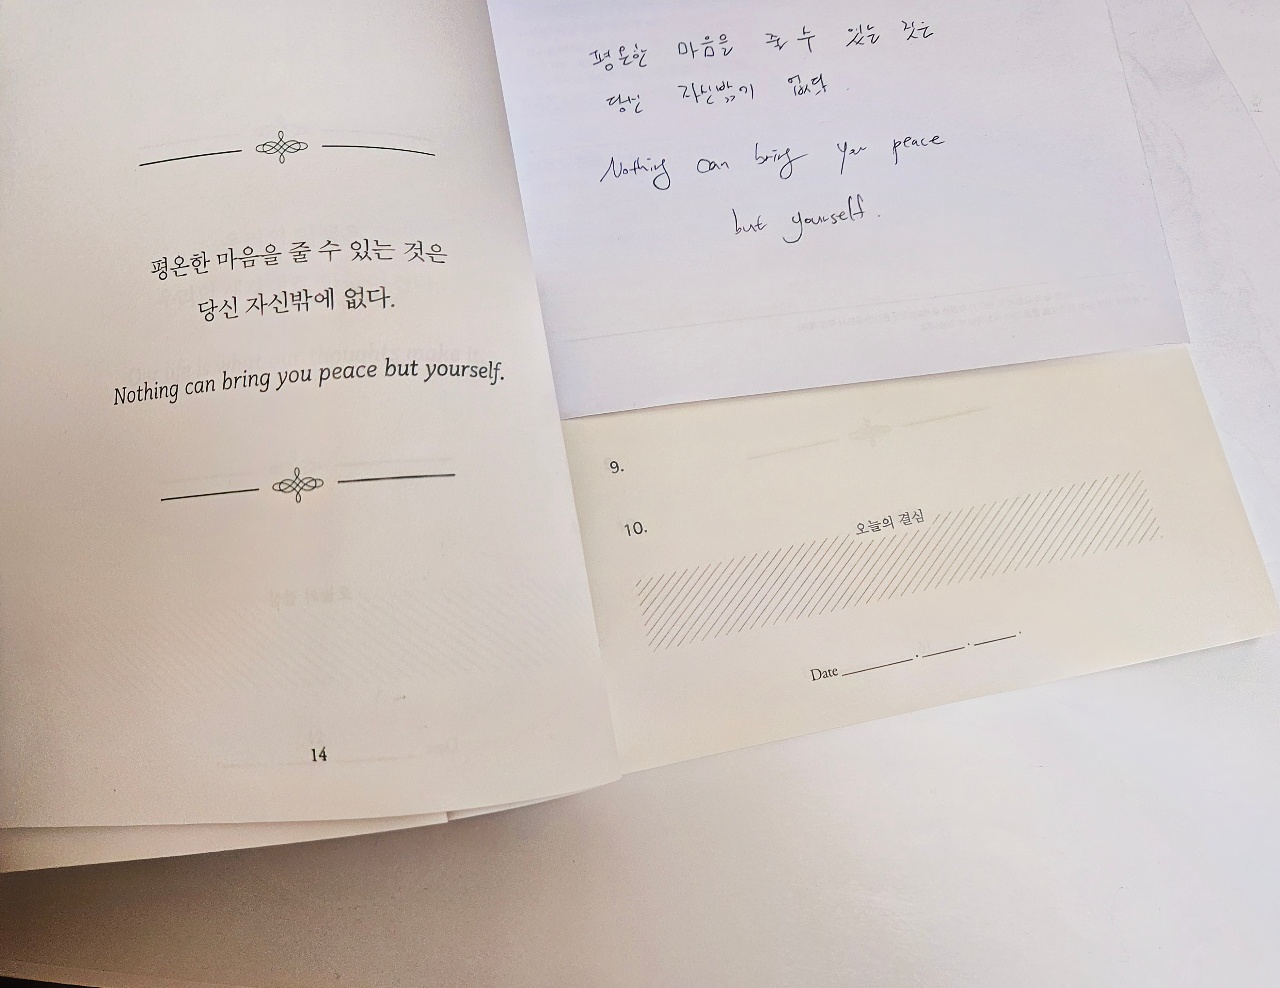 평온한 마음을 줄 수 있는 것은
당신 자신밖에 없다.
Nothing can bring you peace but yourself.
14
평온한 마음을 줄 수 있는 것은
당신 자신밖기 없다.
Nothing can bring you peace
but yourself.
9.
10.
오늘의 결심
Date